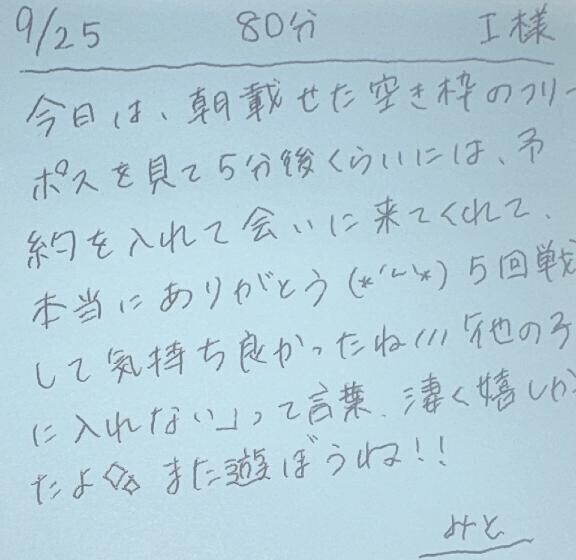 9/25 80分 I様
今日は、朝載せた空き枠のフリー
ポスを見て5分後くらいには、予
約を入れて会いに来てくれて、
本当にありがとう(*´˘`*)5回戦
して気持ち良かったね///「他の子
に入れない」って言葉、凄く嬉しか
たよ✩ また遊ぼうね!!
みと